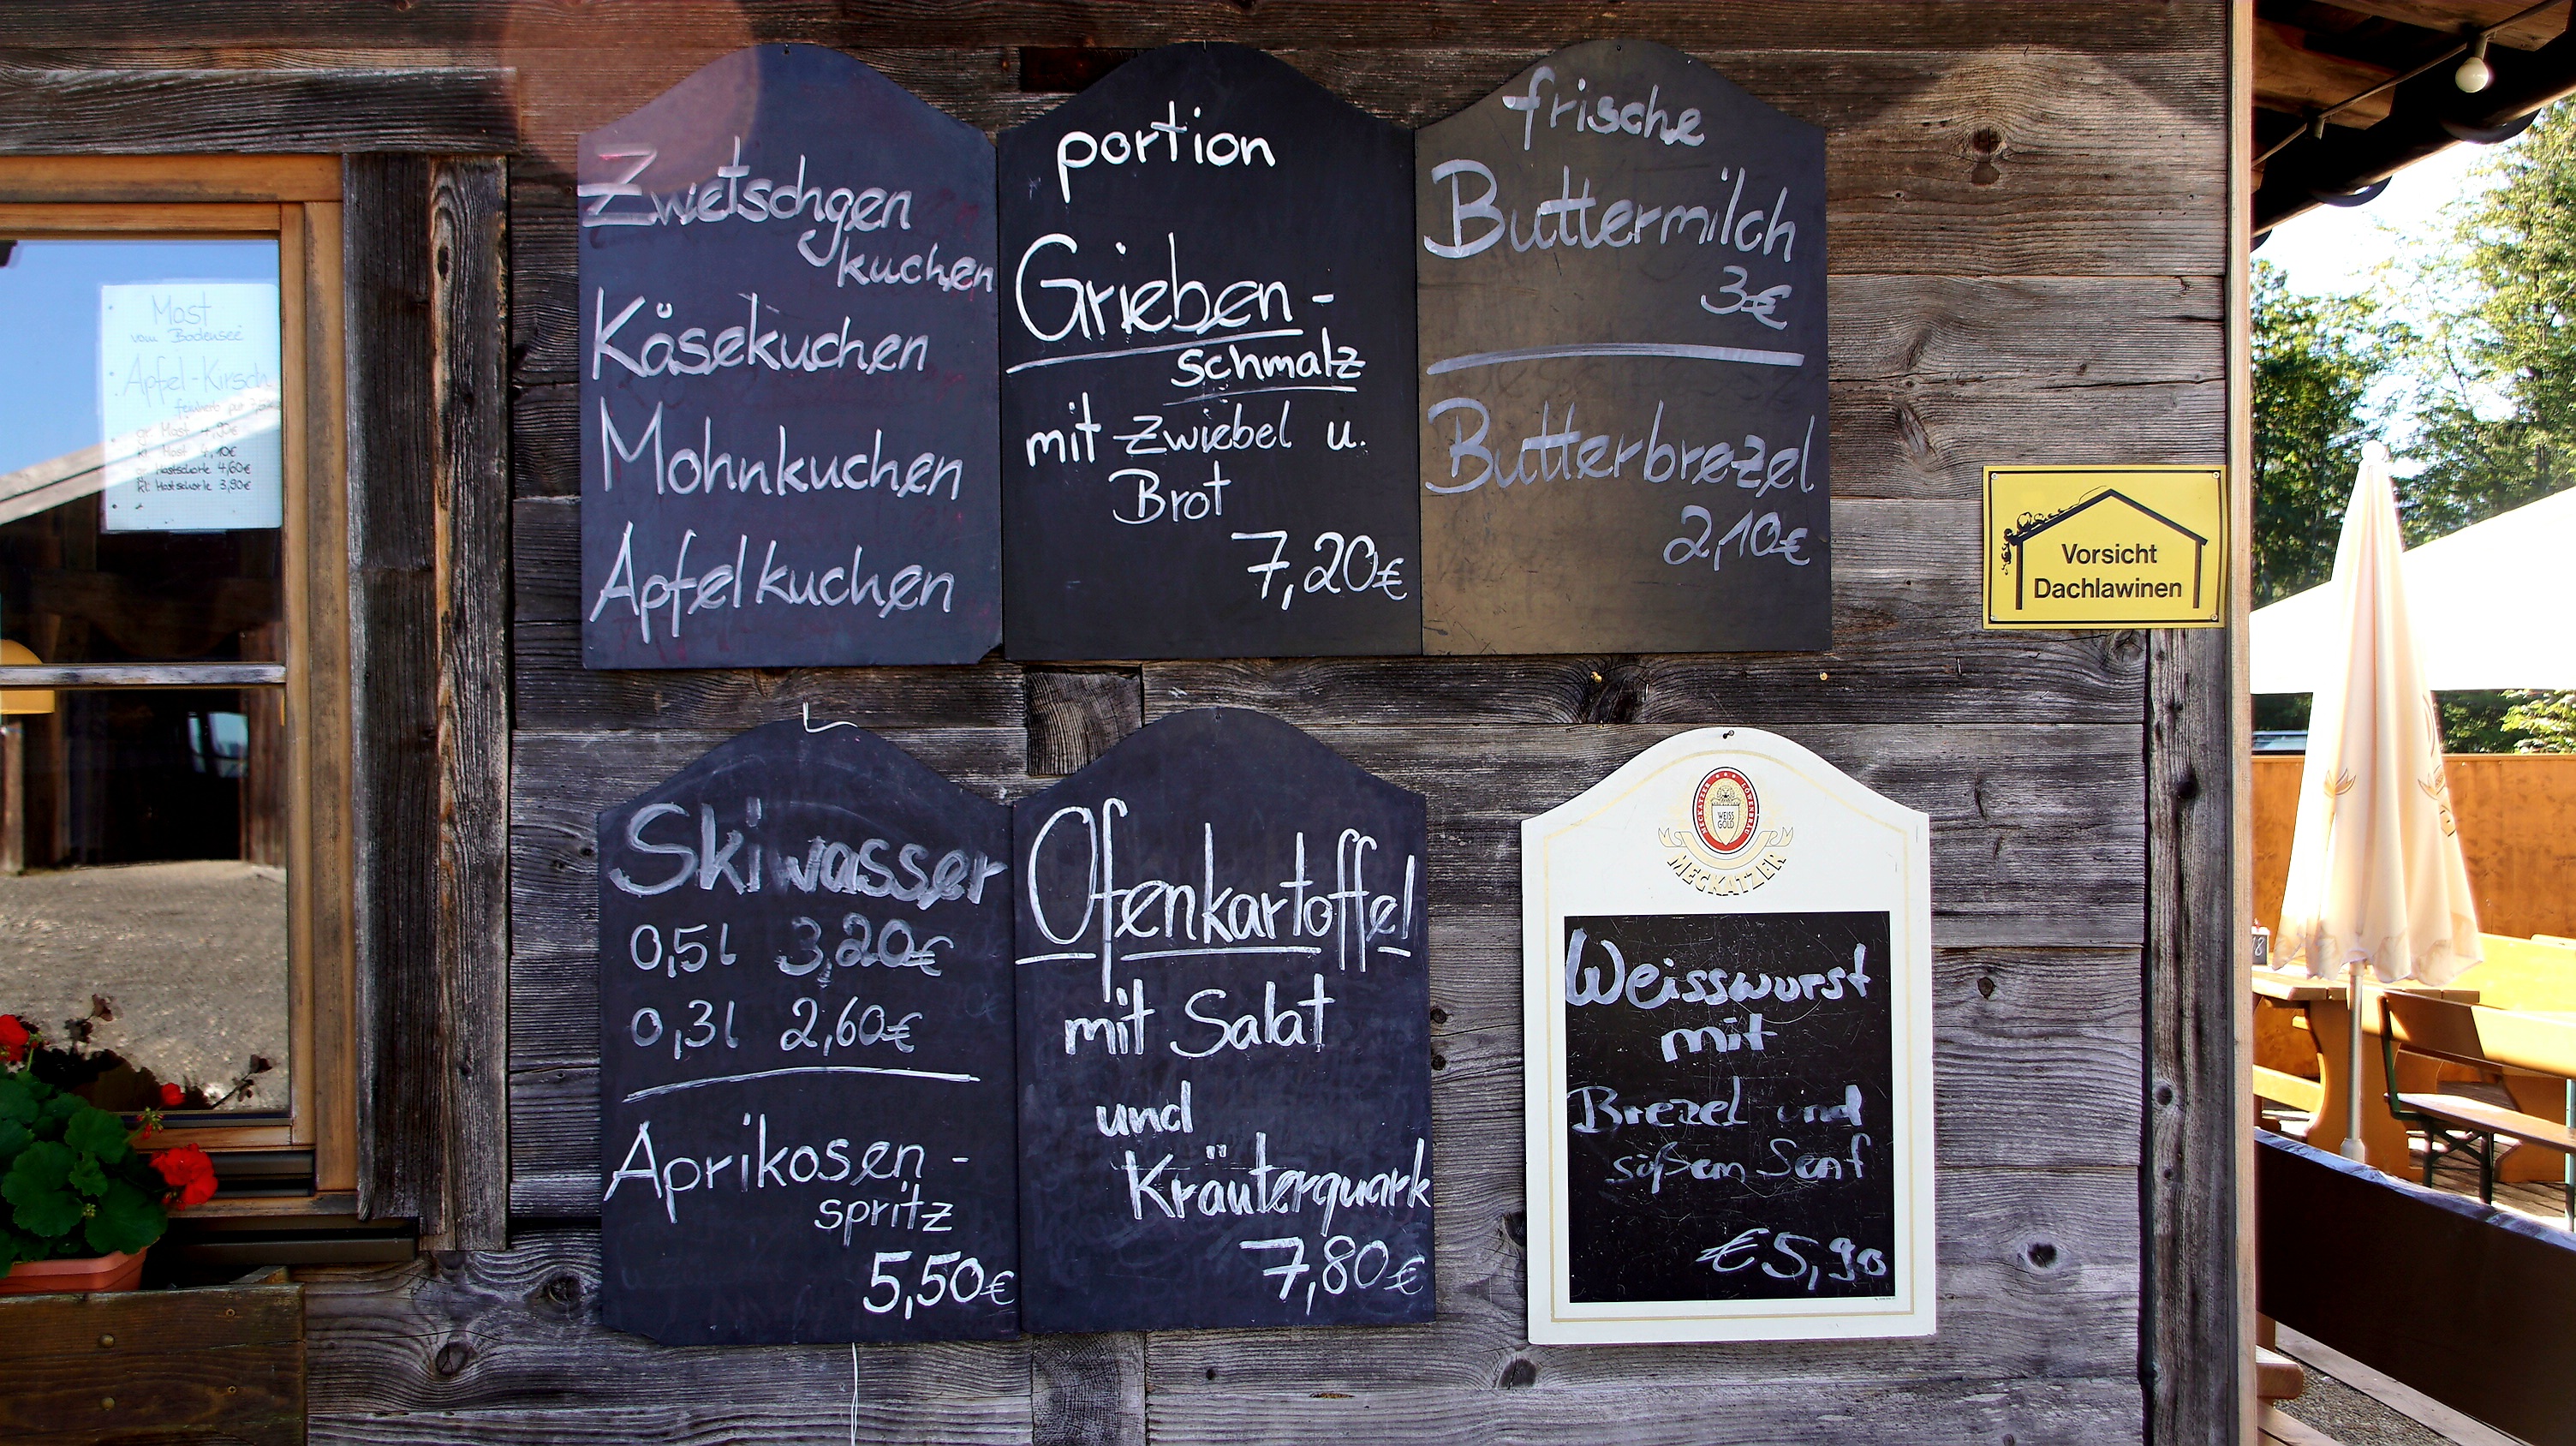 Most
vom Bodensee
Apfel-Kirsch
gr Most 4,90€
kl Most 4,10€
gr Mostschorle 4,60€
kl. Mostschorle 3,90€
Zwetschgen
kuchen
Käsekuchen
Mohnkuchen
Apfelkuchen
portion
Grieben-
schmalz
mit Zwiebel u.
Brot
7,20€
frische
Buttermilch
3€
Butterbrezel
2,10€
Vorsicht
Dachlawinen
Skiwasser
0,5l 3,20€
0,3l 2,60€
Aprikosen-
spritz
5,50€
Ofenkartoffel
mit Salat
und
Kräuterquark
7,80€
WEISS
GOLD
MECKATZER
Weisswurst
mit
Brezel und
süßem Senf
€5,90
18